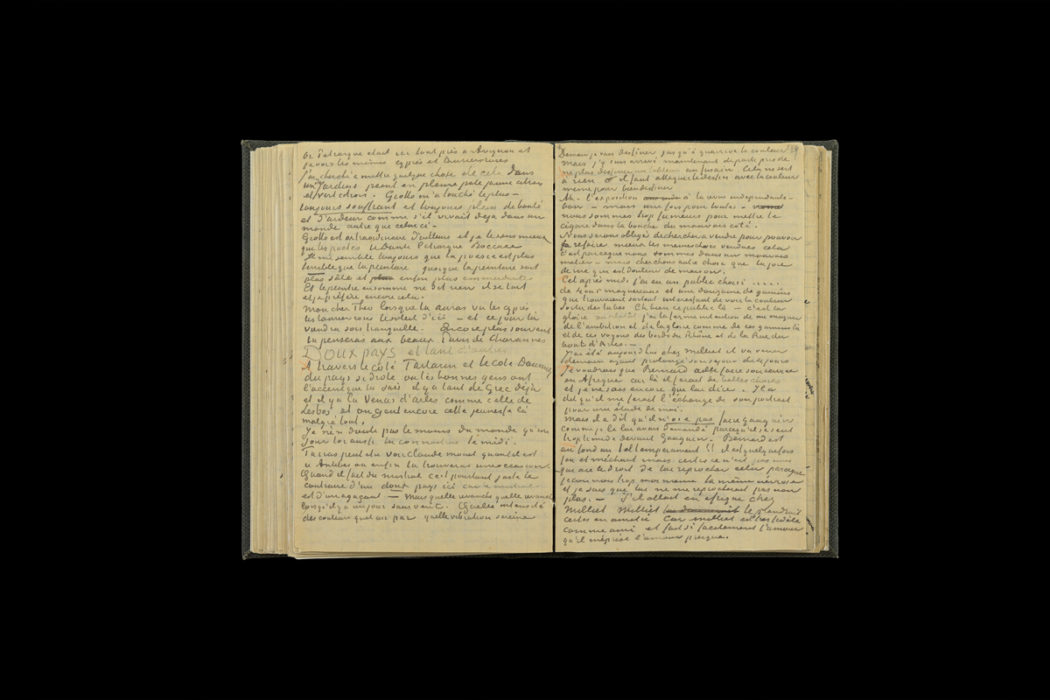 Or Petrarque etait ici tout près à Avignon et
je vois les mêmes cyprès et lauriers roses
J'ai cherché à mettre quelque chose de cela dans
un Jardins peint en pleine pate jaune citron
et vert citron. Giotto m'a touché le plus –
toujours souffrant et toujours plein de bonté
et d'ardeur comme s'il vivait déjà dans un
monde autre que celui ci –
Giotto est extraordinaire d'ailleurs et je le sens mieux
que les poetes le Dante Petrarque Boccace
Il me semble toujours que la poesie est plus
terrible que la peinture quoique la peinture soit
plus sâle et enfin plus emmerdante
Et le peintre en somme ne dit rien il se tait
et je préfère encore cela.
Mon cher Theo lorsque tu auras vu les cyprès
les lauriers roses le soleil d'ici – et ce jour là
viendra sois tranquille. Encore plus souvent
tu penseras aux beaux Puvis de Chavannes
Doux pays et tant d'autres
A travers le côté Tartarin et le côté Daumier
du pays si drôle ou les bonnes gens ont
l'accent que tu sais il y a tant de Grec déjà
et il y a la Venus d'arles comme celle de
Lesbos et on sent encore cette jeunesse là
malgré tout.
Je n'en doute pas le moins du monde qu'un
jour toi aussi tu connaitras le midi.
Tu iras peut être voir Claude monet quand il est
à Antibes ou enfin tu trouveras une occasion
Quand il fait du mistral c'est pourtant juste le
contraire d'un doux pays ici car le mistral
est d'un agaçant – Mais quelle revanche quelle revanche
lorsqu'il y a un jour sans vent. Quelle intensité
des couleurs quel air pur quelle vibration sereine
Demain je vais dessiner jusqu'à ce qu'arrive la couleur
Mais j'y suis arrivé maintenant de parti pris de
ne plus dessiner un tableau au fusain. Cela ne sert
à rien il faut attaquer le dessin avec la couleur
même pour bien dessiner
Ah – l'exposition à la revue independante –
bon – mais une fois pour toutes –
nous sommes trop fumeurs pour mettre le
cigare dans la bouche du mauvais côté.
Nous serons obligés de chercher à vendre pour pouvoir
refaire mieux les memes choses vendues cela
c'est parceque nous sommes dans un mauvais
métier – mais cherchons autre chose que la joie
de rue qui est douleur de maison.
Cet après midi j'ai eu un public choisi .....
de 4 ou 5 maquereaux et une douzaine de gamins
qui trouvaient surtout interessant de voir la couleur
sortir des tubes. Eh bien ce public là – c'est la
gloire j'ai la ferme intention de me moquer
de l'ambition et de la gloire comme de ces gamins là
et de ces voyous des bords du Rhône et de la Rue du
bout d'Arles. –
J'ai été aujourd'hui chez Milliet il va venir
demain ayant prolongé son séjour de 4 jours
Je voudrais que Bernard aille faire son service
en Afrique car là il ferait de belles choses
et je ne sais encore que lui dire. Il a
dit qu'il me ferait l'échange de son portrait
pour une étude de moi.
Mais il a dit qu'il n'ose pas faire Gauguin
comme je le lui avais demandé parcequ'il se sent
trop timide devant Gauguin. Bernard est
au fond un tel temperament !! il est quelquefois
fou et méchant mais certes ce n'est pas moi
qui ai le droit de lui reprocher cela parceque
je connais trop moi meme la même nervose
et je sais que lui ne me reprocherait pas non
plus. – S'il allait en afrique chez
Milliet Milliet le prendrait
certes en amitié Car milliet est très fidèle
comme ami et fait si facilement l'amour
qu'il méprise l'amour presque.